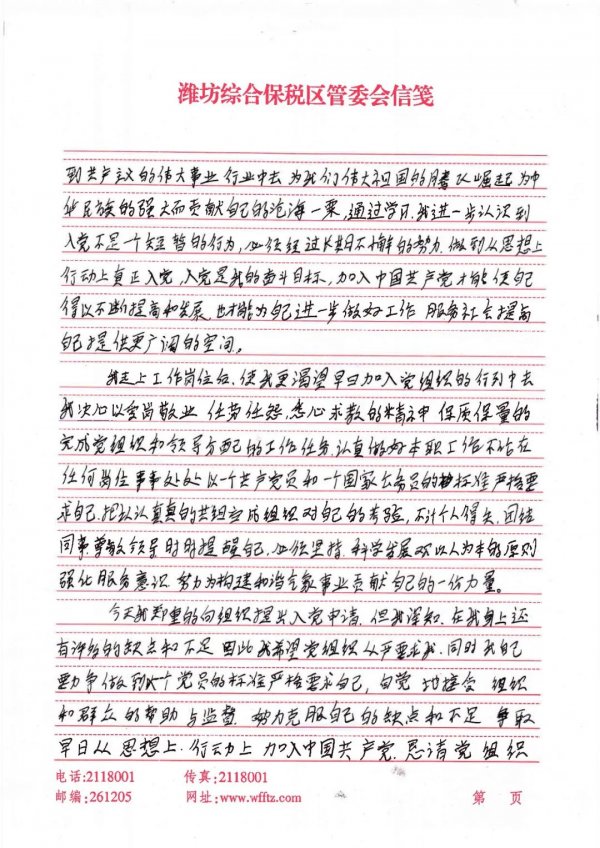 潍坊综合保税区管委会信笺
到共产主义的伟大事业行业中去 为我们伟大祖国的腾飞崛起为中
华民族的强大而贡献自己的沧海一粟,通过学习,我进一步认识到
入党不是一个短暂的行为,必须经过长期不懈的努力.做到从思想上
行动上真正入党,入党是我的奋斗目标,加入中国共产党才能使自己
得以不断提高和发展,也才能为自己进一步做好工作 服务社会提高
自己提供更广阔的空间。
我走上工作岗位后,使我更渴望早日加入党组织的行列中去
我决心以爱岗敬业 任劳任怨.悉心求教的精神 保质保量的
完成党组织和领导分配的工作任务.认真做好本职工作不论在
任何岗位事事处处以一个共产党员和一个国家公务员的标准严格要
求自己.把认认真真的 组织对自己的考验,不计个人得失,团结
同事,尊敬领导时时提醒自己,必须坚持 科学发展观以人为本的原则
强化服务意识 努力为构建和谐 事业贡献自己的一份力量。
今天我郑重的向组织提出入党申请.但我深知,在我身上还
有许多的缺点和不足 因此,我希望党组织从严要求我.同时我自己
要力争做到以一个党员的标准严格要求自己,自觉 地接受 组织
和群众的帮助与监督 努力克服自己的缺点和不足 争取
早日从思想上.行动上 加入中国共产党.恳请党 组织
电话:2118001 传真:2118001
邮编:261205 网址:www.wfftz.com 第 页